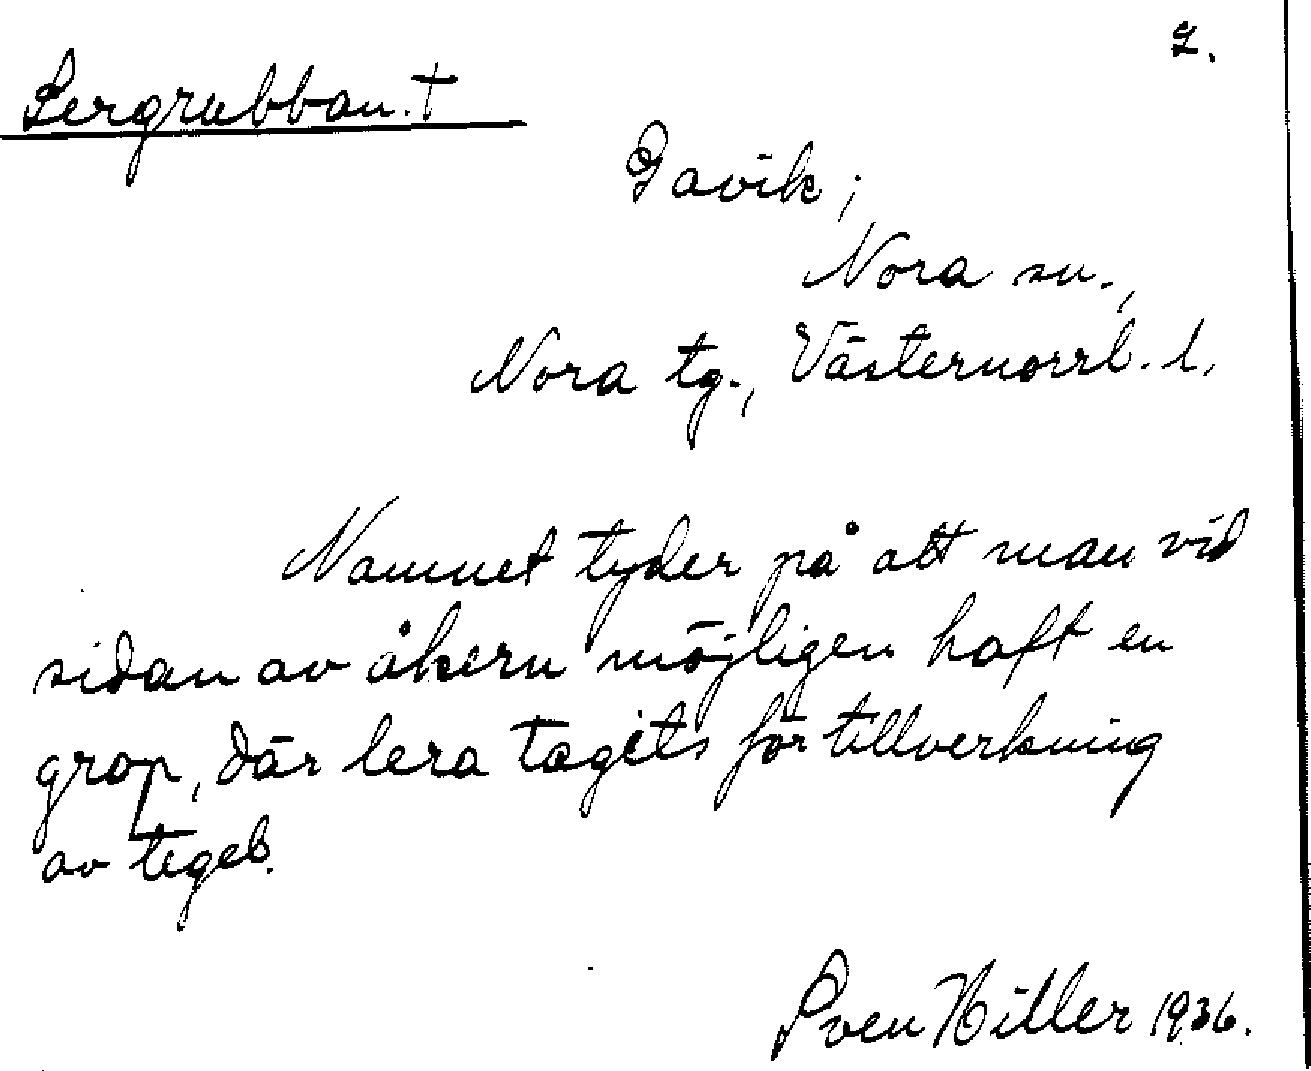 2.
Lergrubban. †
Gavik;
Nora sn.,
Nora tg., Västernorrl. l.
Namnet tyder på att man vid
sidan av åkern möjligen haft en
grop, där lera tagits för tillverkning
av tegel.
Sven Hiller 1936.